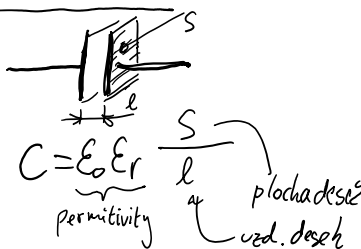 S
l
C = ε₀ εᵣ S / l
permitivity
plocha desek
vzd. desek